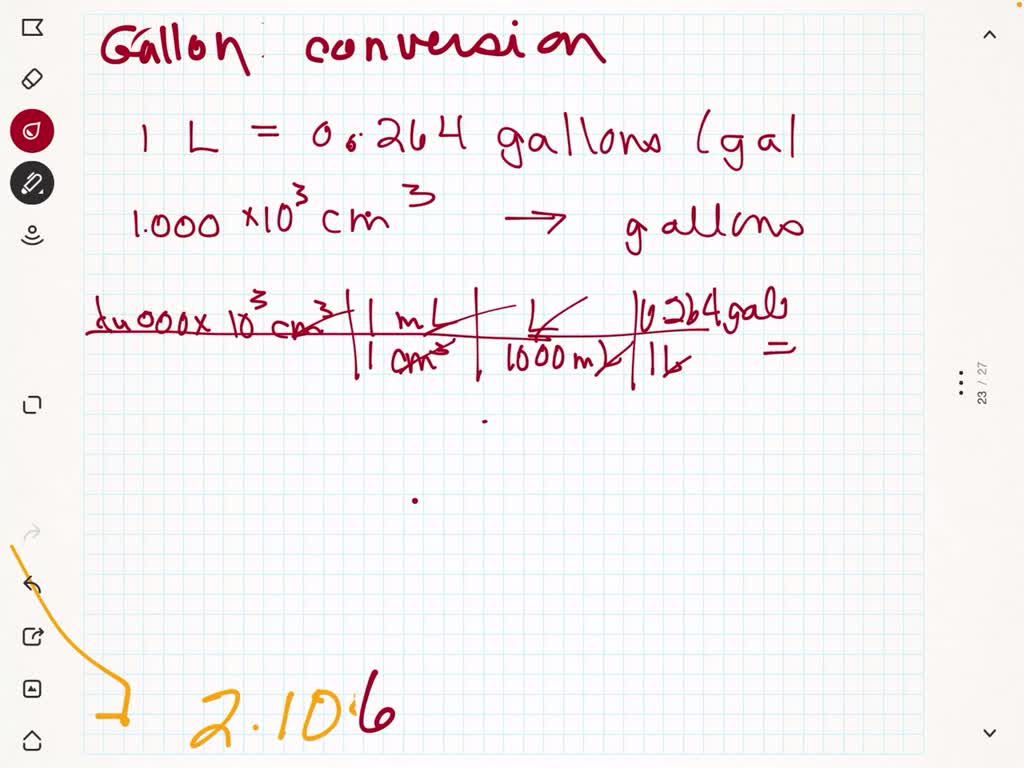 Gallon conversion
1 L = 0.264 gallons (gal
1.000 ×10³ cm³ → gallons
000 × 10³ cm³ | 1 mL | L | 0.264 gals
1 cm³ | 1000 mL | 1L =
23 / 27
2.10.6